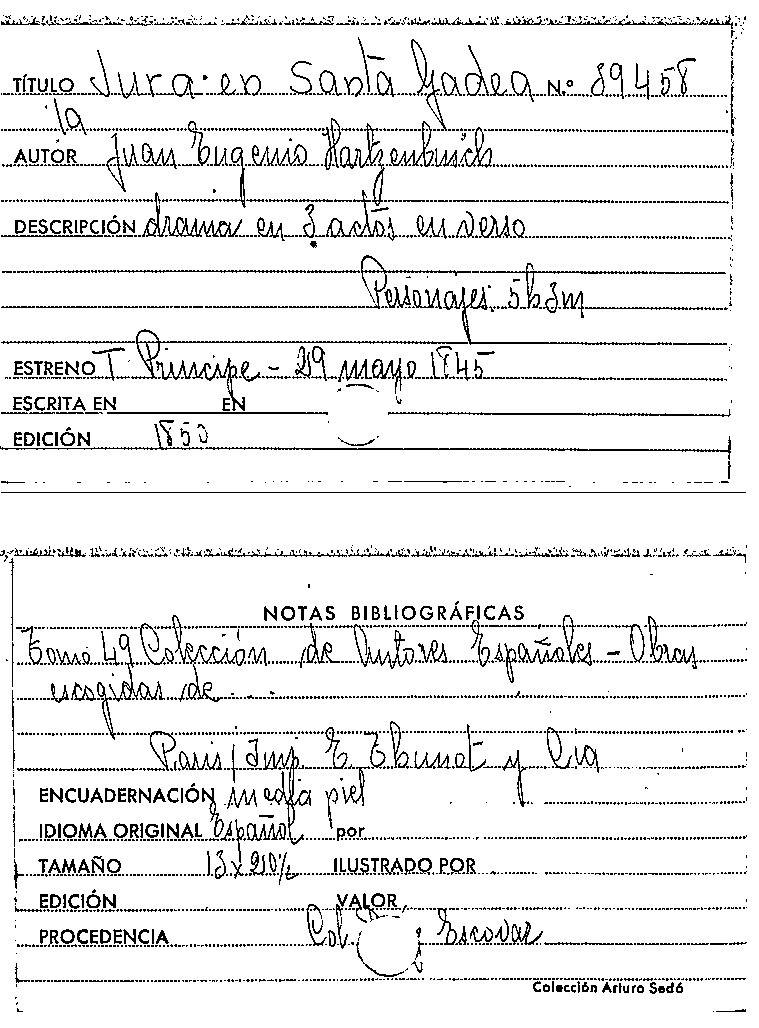 TÍTULO Jura en Santa Gadea N.º 89458
la
AUTOR Juan Eugenio Hartzenbusch
DESCRIPCIÓN drama en 3 actos en verso
Personajes: 5h3m
ESTRENO T Principe - 29 mayo 1845
ESCRITA EN EN
EDICIÓN 1850
NOTAS BIBLIOGRÁFICAS
Tomo 49 Colección de Autores Españoles - Obras
escogidas de...
Paris/Imp. E. Thunot y Cia
ENCUADERNACIÓN media piel
IDIOMA ORIGINAL Español por
TAMAÑO 13 x 210½ ILUSTRADO POR
EDICIÓN VALOR
PROCEDENCIA Col. Escovar
Colección Arturo Sedó